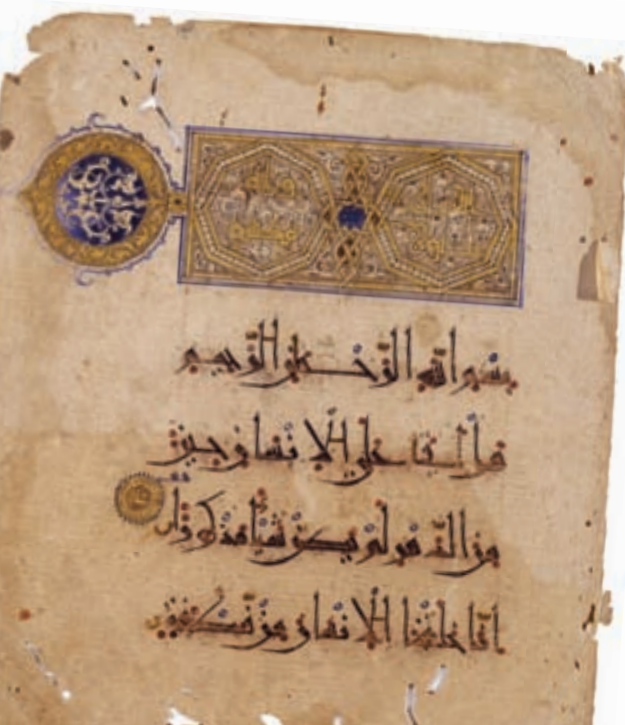 بسم الله الرحمن الرحيم
هل أتى على الإنسان حين
من الدهر لم يكن شيئا مذكورا
إنا خلقنا الإنسان من نطفة